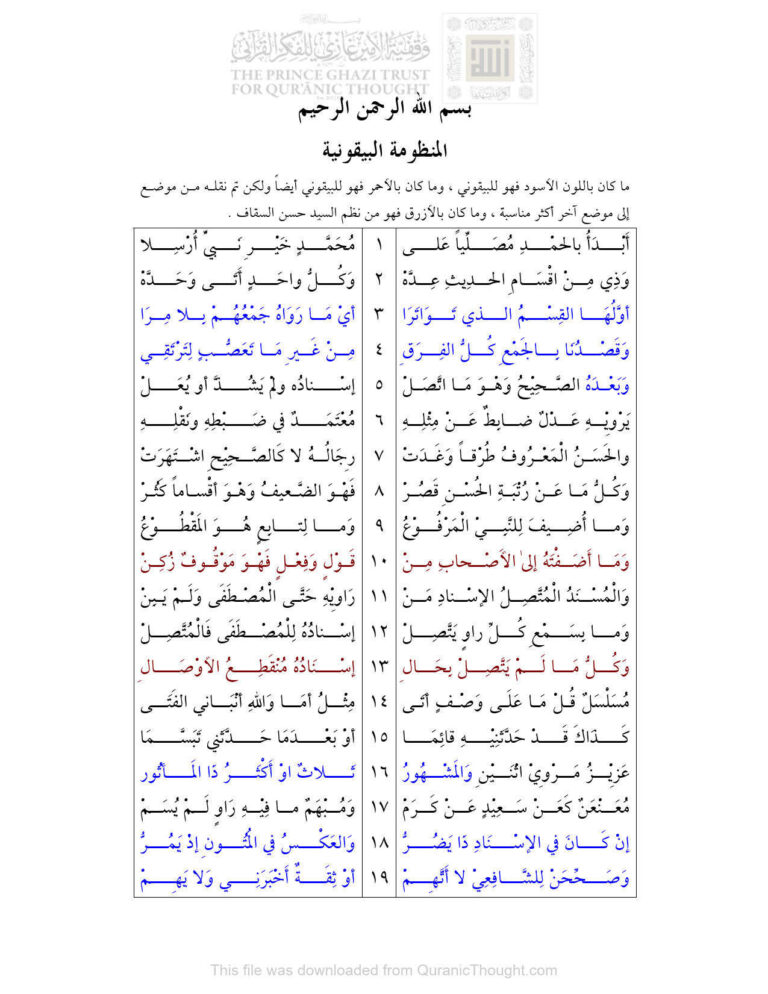 وقفية الأمير غازي للفكر القرآني
THE PRINCE GHAZI TRUST
FOR QUR'ĀNIC THOUGHT
بسم الله الرحمن الرحيم
المنظومة البيقونية
ما كان باللون الأسود فهو للبيقوني ، وما كان بالأحمر فهو للبيقوني أيضاً ولكن تم نقلـه مـن موضـع
إلى موضع آخر أكثر مناسبة ، وما كان بالأزرق فهو من نظم السيد حسن السقاف .
أَبْـدَأُ بالحمْـدِ مُصَـلِّياً عَلـى ١ مُحَمَّـدٍ خَيْـرِ نَـبِيٍّ أُرْسِـلا
وَذِي مِـنْ اقْسَـامِ الحـديثِ عِـدَّهْ ٢ وَكُـلُّ واحَـدٍ أَتَـى وَحَـدَّهْ
أوَّلُهَـا القِسْـمُ الـذي تَـوَاتَرَا ٣ أيْ مَـا رَوَاهُ جَمْعُهُـمْ بـلا مِـرَا
وَقَصْـدُنَا بـالجَمْعِ كُـلُّ الفِـرَقِ ٤ مِـنْ غَـيرِ مَـا تَعَصُّـبٍ لِتَرْتَقِـي
وَبَعْـدَهُ الصَّـحِيْحُ وَهْـوَ مَـا اتَّصَـلْ ٥ إسْـنادُه ولمْ يَشُـذَّ أو يُعَـلْ
يَرْوِيْـهِ عَـدْلٌ ضـابِطٌ عَـنْ مِثْلِـهِ ٦ مُعْتَمَـدٌ في ضَـبْطِهِ وَنَقْلِـهِ
والحَسَـنُ الْمَعْـرُوفُ طُرْقـاً وَغَـدَتْ ٧ رِجَالُـهُ لا كَالصَّـحِيْحِ اشْـتَهَرَتْ
وَكُـلُّ مَـا عَـنْ رُتْبَـةِ الحُسْـنِ قَصُـرْ ٨ فَهْـوَ الضَّـعيفُ وَهْـوَ أقْسـاماً كَثُـرْ
وَمـا أُضِـيفَ لِلنَّبِـيْ الْمَرْفُـوْعُ ٩ وَمـا لِتـابِعٍ هُـوَ المَقْطُـوْعُ
وَمَـا أَضَـفْتَهُ إلىٰ الأَصْـحابِ مِـنْ ١٠ قَـوْلٍ وَفِعْـلٍ فَهْـوَ مَوْقُـوفٌ زُكِـنْ
وَالْمُسْـنَدُ الْمُتَّصِـلُ الإسْـنادِ مَـنْ ١١ رَاوِيْهِ حَتَّـى الْمُصْـطَفَى وَلَـمْ يَـبِنْ
وَمـا بِسَـمْعِ كُـلِّ راوٍ يَتَّصِـلْ ١٢ إسْـنادُهُ لِلْمُصْـطَفَى فَالْمُتَّصِـلْ
وَكُـلُّ مَـا لَـمْ يَتَّصِـلْ بِحَـالِ ١٣ إسْـنَادُهُ مُنْقَطِـعُ الأوْصَـالِ
مُسَلْسَلٌ قُـلْ مَـا عَلَـى وَصْـفٍ أتَـى ١٤ مِثْـلُ أمَـا وَاللهِ أنْبَـاني الفَتَـى
كَـذَاكَ قَـدْ حَدَّثَنِيْـهِ قائِمَـا ١٥ أوْ بَعْـدَمَا حَـدَّثَنِي تَبَسَّـمَا
عَزِيْـزُ مَـرْوِيْ اثْنَـيْنِ وَالمَشْـهُورُ ١٦ ثَـلاثٌ اوْ أَكْثَـرُ ذَا المَـأثُور
مُعَـنْعَنٌ كَعَـنْ سَـعِيْدٍ عَـنْ كَـرَمْ ١٧ وَمُـبْهَمٌ مـا فِيْـهِ رَاوٍ لَـمْ يُسَـمْ
إنْ كَـانَ في الإسْـنَادِ ذَا يَضُـرُّ ١٨ وَالعَكْـسُ في الْمُتُـونِ إذْ يَمُـرُّ
وَصَـحِّحَنْ لِلشَّـافِعِيْ لا أَتَّهِـمْ ١٩ أوْ ثِقَـةٌ أَخْبَرَنِـي وَلا يَهِـمْ
This file was downloaded from QuranicThought.com